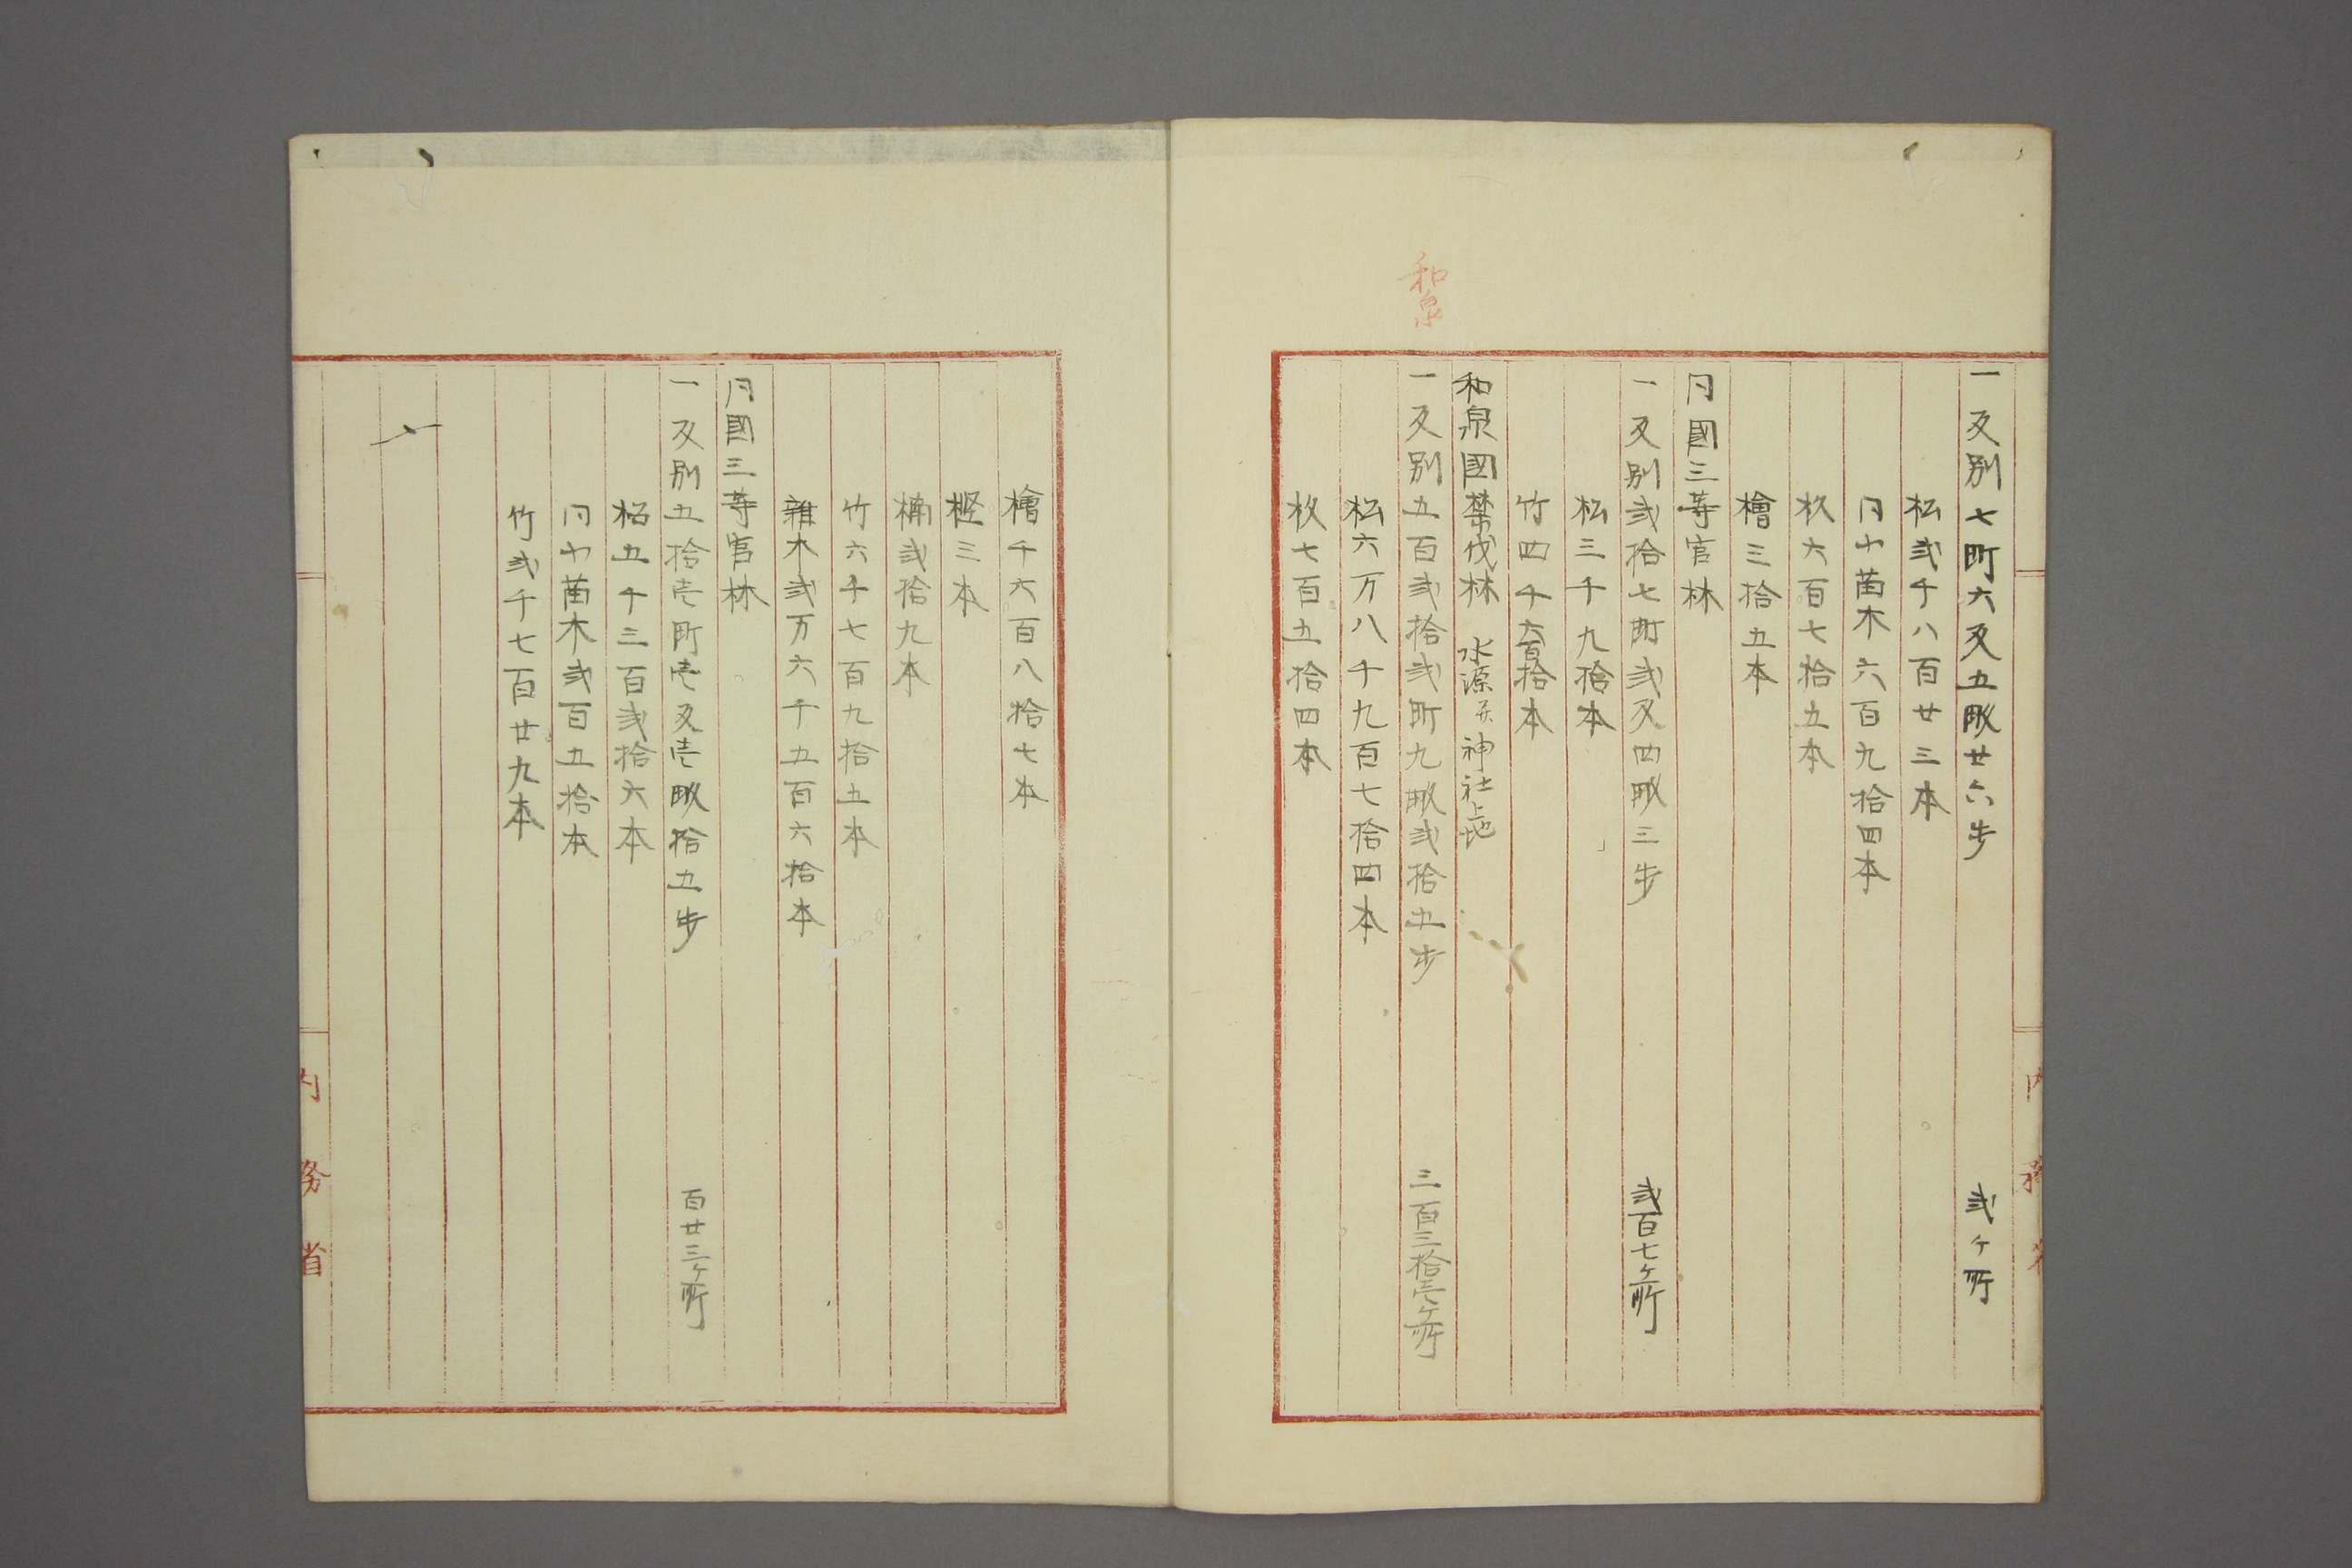 一反別七町六反五畝廿六歩　弐ヶ所
松弐千八百廿三本
同小苗木六百九拾四本
杦六百七拾五本
檜三拾五本
同國三等官林
一反別弐拾七町弐反四畝三歩　弐百七ヶ所
松三千九拾本
竹四千六百拾本
和泉
和泉國禁伐林　水源并神社上地
一反別五百弐拾弐町九畝弐拾五歩　三百三拾壱ヶ所
松六万八千九百七拾四本
杦七百五拾四本
檜千六百八拾七本
樫三本
楠弐拾九本
竹六千七百九拾五本
雜木弐万六千五百六拾本
同國三等官林
一反別五拾壱町壱反壱畝拾五歩　百廿三ヶ所
松五千三百弐拾六本
同小苗木弐百五拾本
竹弐千七百廿九本
内務省